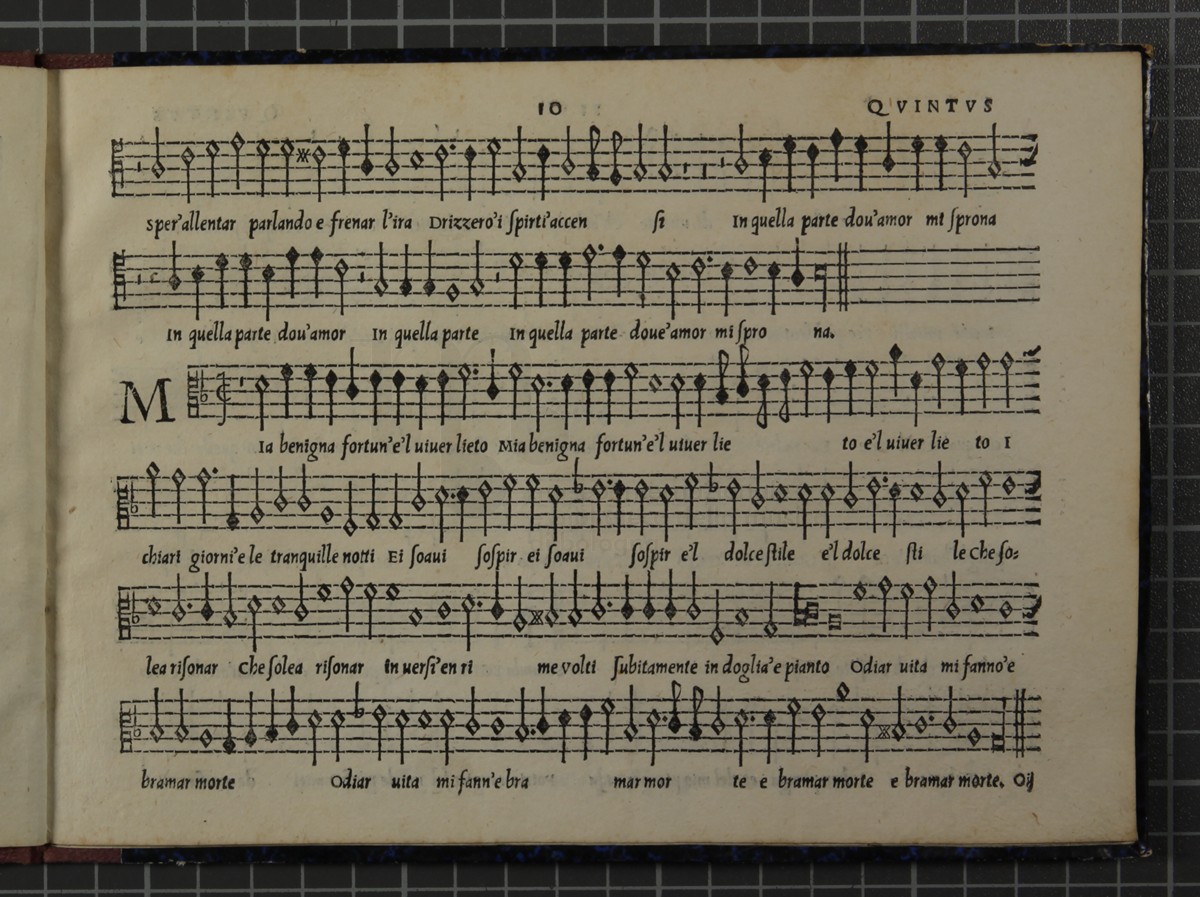 10 QVINTVS
sper'allentar parlando e frenar l'ira Drizzero'i ſpirti'accen ſi In quella parte dou'amor mi ſprona
In quella parte dou'amor In quella parte In quella parte doue'amor mi ſpro na.
M Ia benigna fortun'e'l uiuer lieto Mia benigna fortun'e'l uiuer lie to e'l uiuer lie to I
chiari giorni'e le tranquille notti Ei ſoaui ſoſpir ei ſoaui ſoſpir e'l dolce ſtile e'l dolce ſti le che ſo=
lea riſonar Che ſolea riſonar in uerſi'en ri me volti ſubitamente in doglia'e pianto Odiar uita mi fanno'e
bramar morte Odiar uita mi fann'e bra mar mor te e bramar morte e bramar morte. Oij